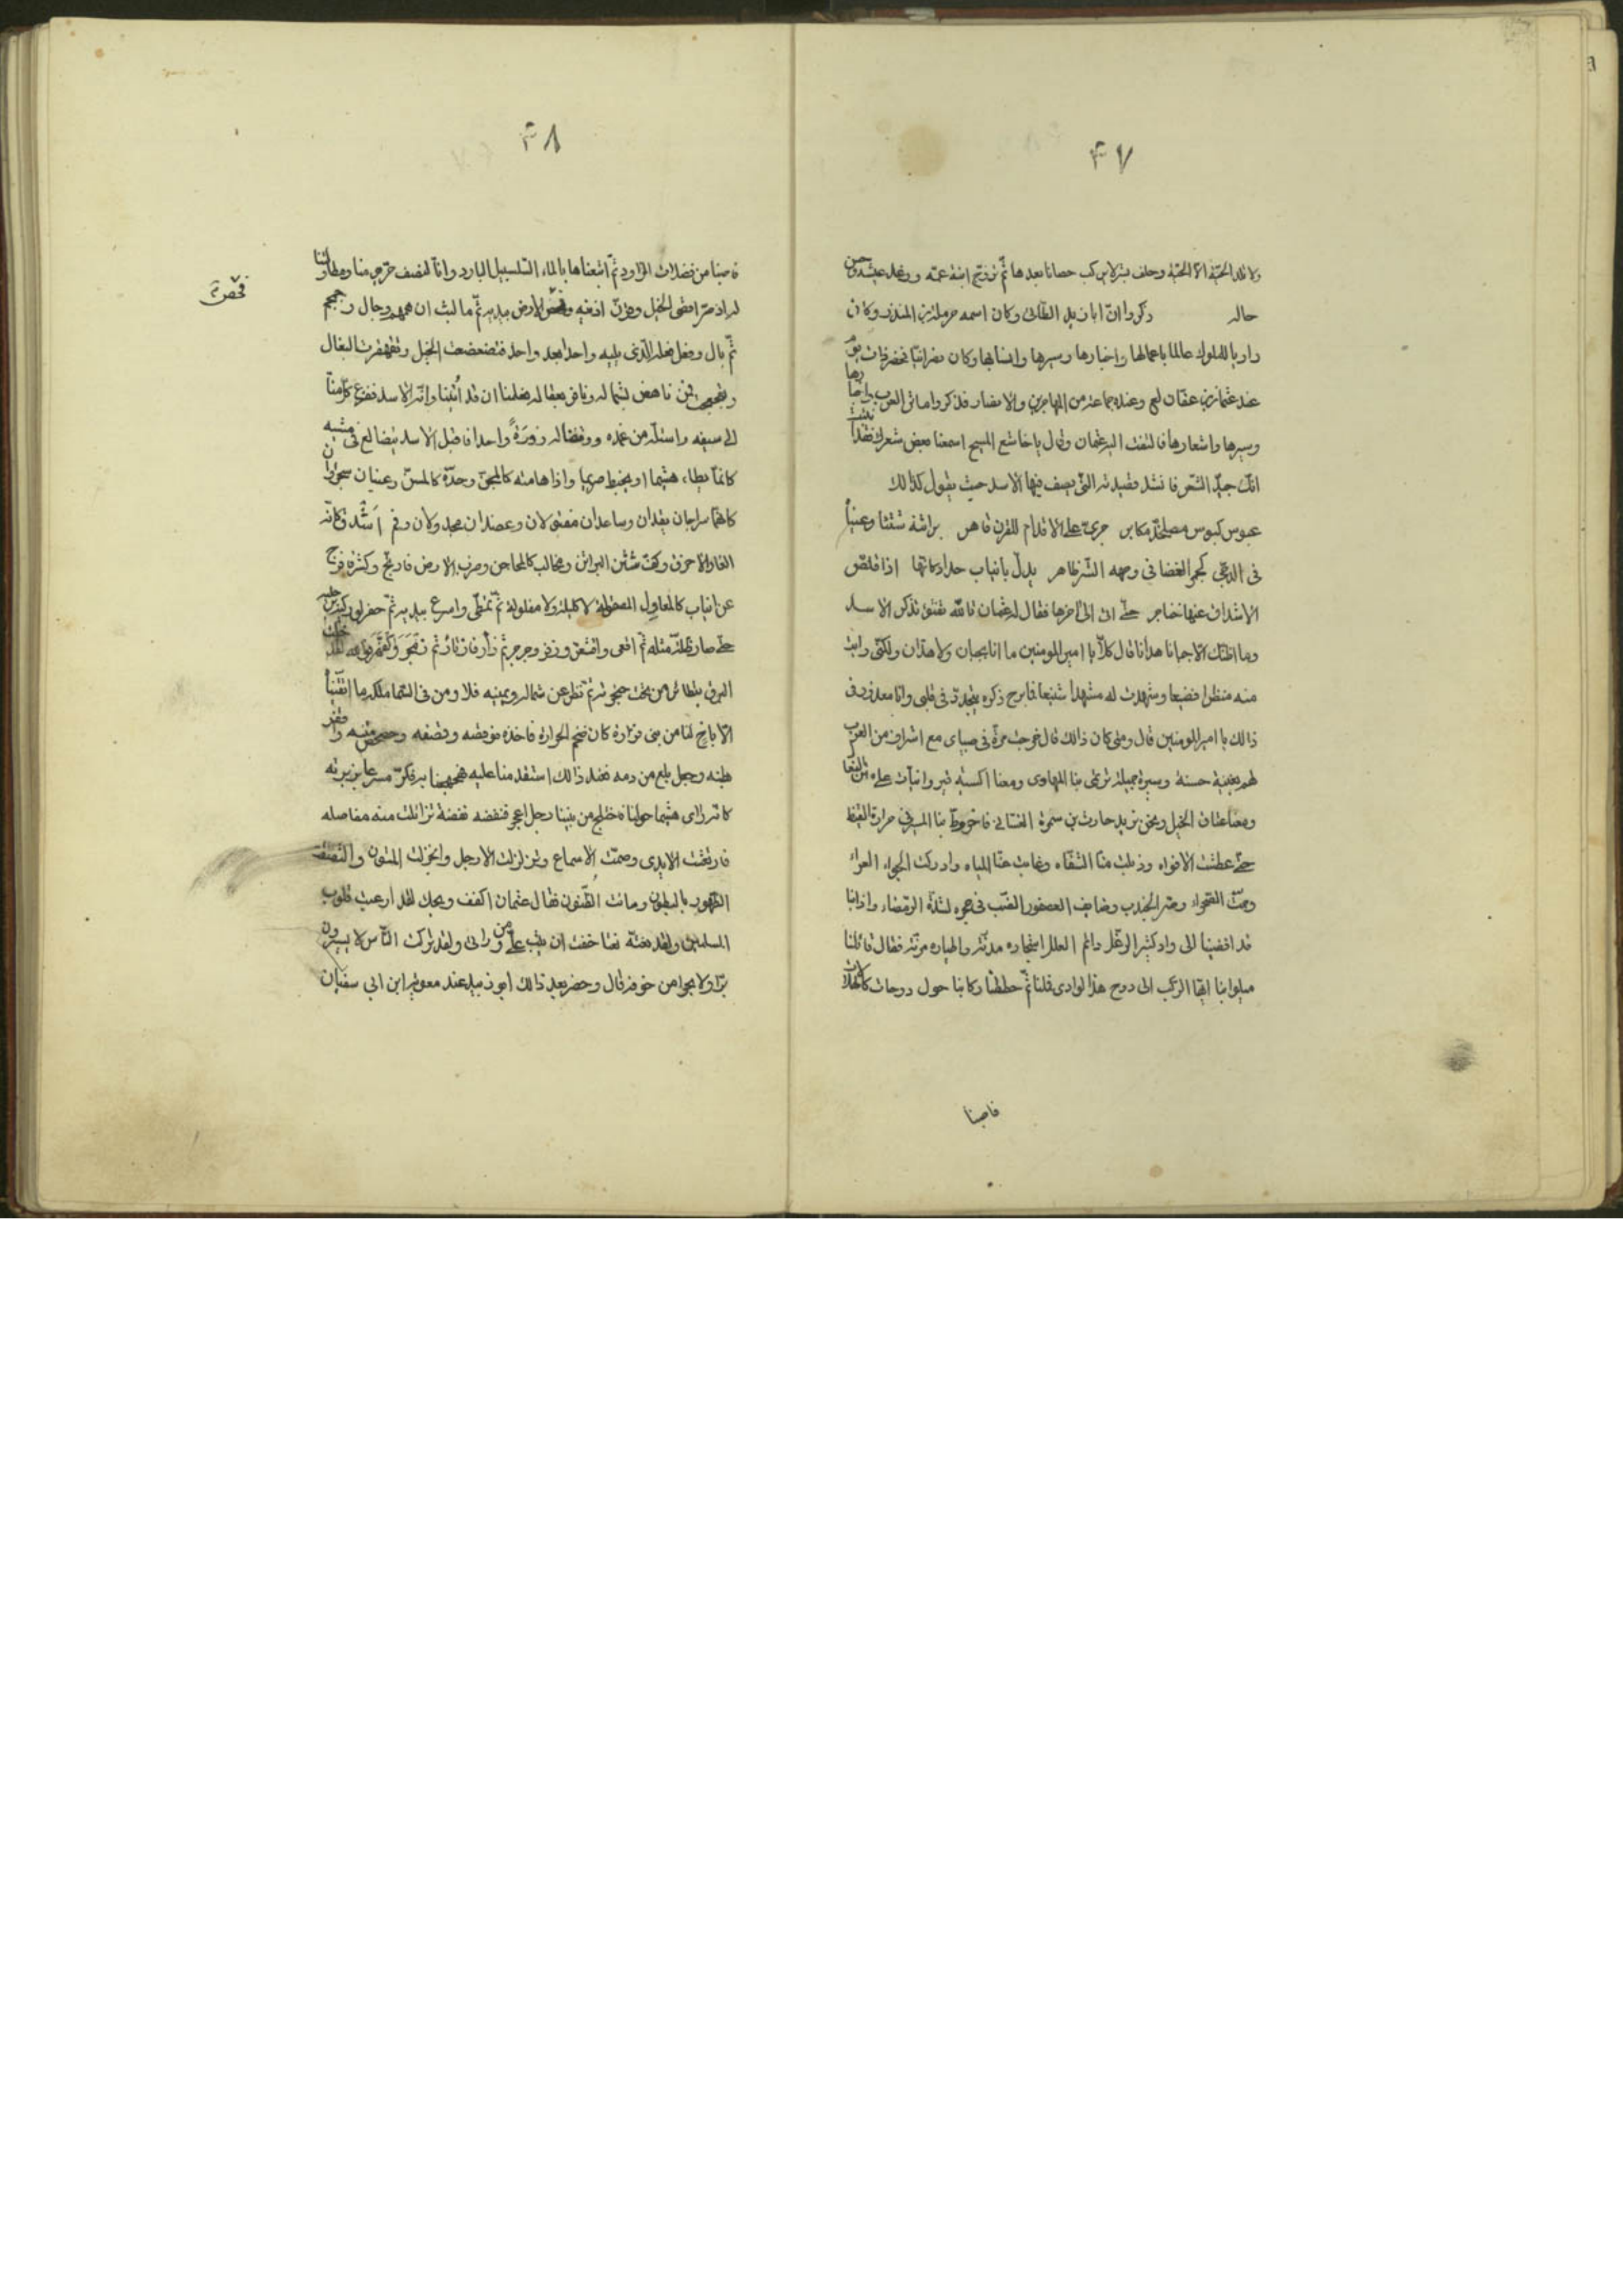 ۴۷
ولا تلد الحيّة الّا الحيّة وحلف بشر لا يركب حصانا بعدها ثمّ تزوّج ابنة عمّه ورغد عيشه وحسن
حاله ذكروا انّ ابا زبيد الطّائى وكان اسمه حرملة بن المنذر وكان
زوّارا للملوك عالما باعمالها واخبارها وسيرها وانسابها وكان نصرانيّا فحضر ذات يوم
عند عثمان بن عفّان وعنده جماعة من المهاجرين والانصار فذكروا ماثر العرب واخبارها
وسيرها واشعارها فالتفت اليه عثمان وقال يا تابع المسيح اسمعنا بعض شعرك فقد انبئت
انّك جيّد الشّعر فانشد قصيدته الّتى يصف فيها الاسد حيث يقول كذالك
عبوس كبوس مصلخدّ مكابر جرىّ على الاقدام للقرن قاهر براثنه شثنا وعيناه
فى الدّجى كجمر الغضا فى وجهه الشّر ظاهر يدلّ بانياب حداد كانّها اذا قلّص
الاشداق عنها خناجر حتّى اتى الى اخرها فقال له عثمان تالله تفتؤ تذكر الاسد
وما اظنّك الّا جبانا هدانا قال كلّا يا امير المومنين ما انا بجبان ولا هدان ولكنّى رايت
منه منظرا فضيعا وشهدت له مشهدا شنيعا فابرح ذكره يتجدّد فى قلبى وانا معذور فى
ذالك يا امير المومنين قال ومتى كان ذالك قال خرجت مرّة فى صباى مع اشراف من العرب
لهم بغية حسنة وسيرة جميلة ترتمى بنا المهاوى ومعنا اكسية
ومعنا عتاق الخيل ونحن نريد حارث بن سمرة الغسّانى فاخروّط بنا المسير فى حرارة القيظ
حتّى عطشت الافواه وذبلت منّا الشّفاه وغابت عنّا المياه وادركت الجوزاء العزاء
وصرّ الجندب وضايف العصفور الضّبّ فى جحره لشدّة الرّمضاء واذا بنا
قد افضينا الى واد كثير الدّغل دائم العلل اشجاره مدنّة واطياره مرنّة فقال قائلنا
ميلوا بنا ايّها الرّكب الى دوح هذا الوادى فملنا ثمّ حططنا ركابنا حول دوحات
فاصبنا
۴۸
فاصبنا من فضلات المزاود ثمّ اتبعناها بالماء السّلسبيل البارد وانّا لنصف حرّ يومنا ومطاولتنا
له اذ صرّ اقصى الخيل اذنيه وفحص الارض بيديه ثمّ ما لبث ان همهم وجال وحمحم
ثمّ بال وفعل فعله الّذى يليه واحدا بعد واحد فتضعضعت الخيل وتقهقرت البغال
ناهض لشماله ونافر بعقاله فعلمنا ان قد اُتينا وانّه الاسد ففزع كلّ منّا
الى سيفه واستلّه من غمده ووقفنا له زورَةً واحدا فاقبل الاسد يتضالع فى مشيه
كانّما يطاء هشيما او يخبط صريما واذا هامته كالمجنّ وخدّه كالمسنّ وعينان سجراوان
كانّهما سراجان يقدان وساعدان مفتولان وعضدان مجدولان وفم اَشْدق كانّه
الغار الاخرق وكفّ شثن البراثن ومخالب كالمحاجن وضرب الارض فارهج وكشّر فافرج
عن انياب كالمعاول المصقولة لا كليلة ولا مفلولة ثمّ تمطّى واسرع بيديه ثمّ حفز بوركيه رجليه
حتّى صار ظلّه مثله ثمّ اقعى واقشعرّ وزفر وجرجر ثمّ زأر فازئارّ ثمّ
البرق يتطائر من تحت حنجرته ثمّ نظر عن شماله ويمينه فلا ومن فى السّما ملكه ما اتّقيناه
الّا باخ لنا من بنى فزارة كان ضخم الجزارة فاخذه فوقصه وقضقضه
بطنه وجعل يلغ من دمه فعند ذالك استقدمنا عليه فهجهجنا به فكرّ مسرعا بزبرته
كانّه رأى هشيما حولنا فاختلج من بيننا رجل اعجر فنفضه نفضة تزائلت منه مفاصله
فارتعشت الايدى وصمّت الاسماع وتزلزلت الارجل وانخزلت المتون والتصقت
الظّهور بالبطون وسائت الظّنون فقال عثمان اكفف ويحك لقد ارعبت قلوب
المسلمين ولقد وصفته نعتا خفت ان يثب علىّ من ورائى ولقد تركت النّاس لا يسيرون
برّا ولا بحرا من خوفه قال وحضر بعد ذالك ابو زبيد عند معوية ابن ابى سفيان
فحّص